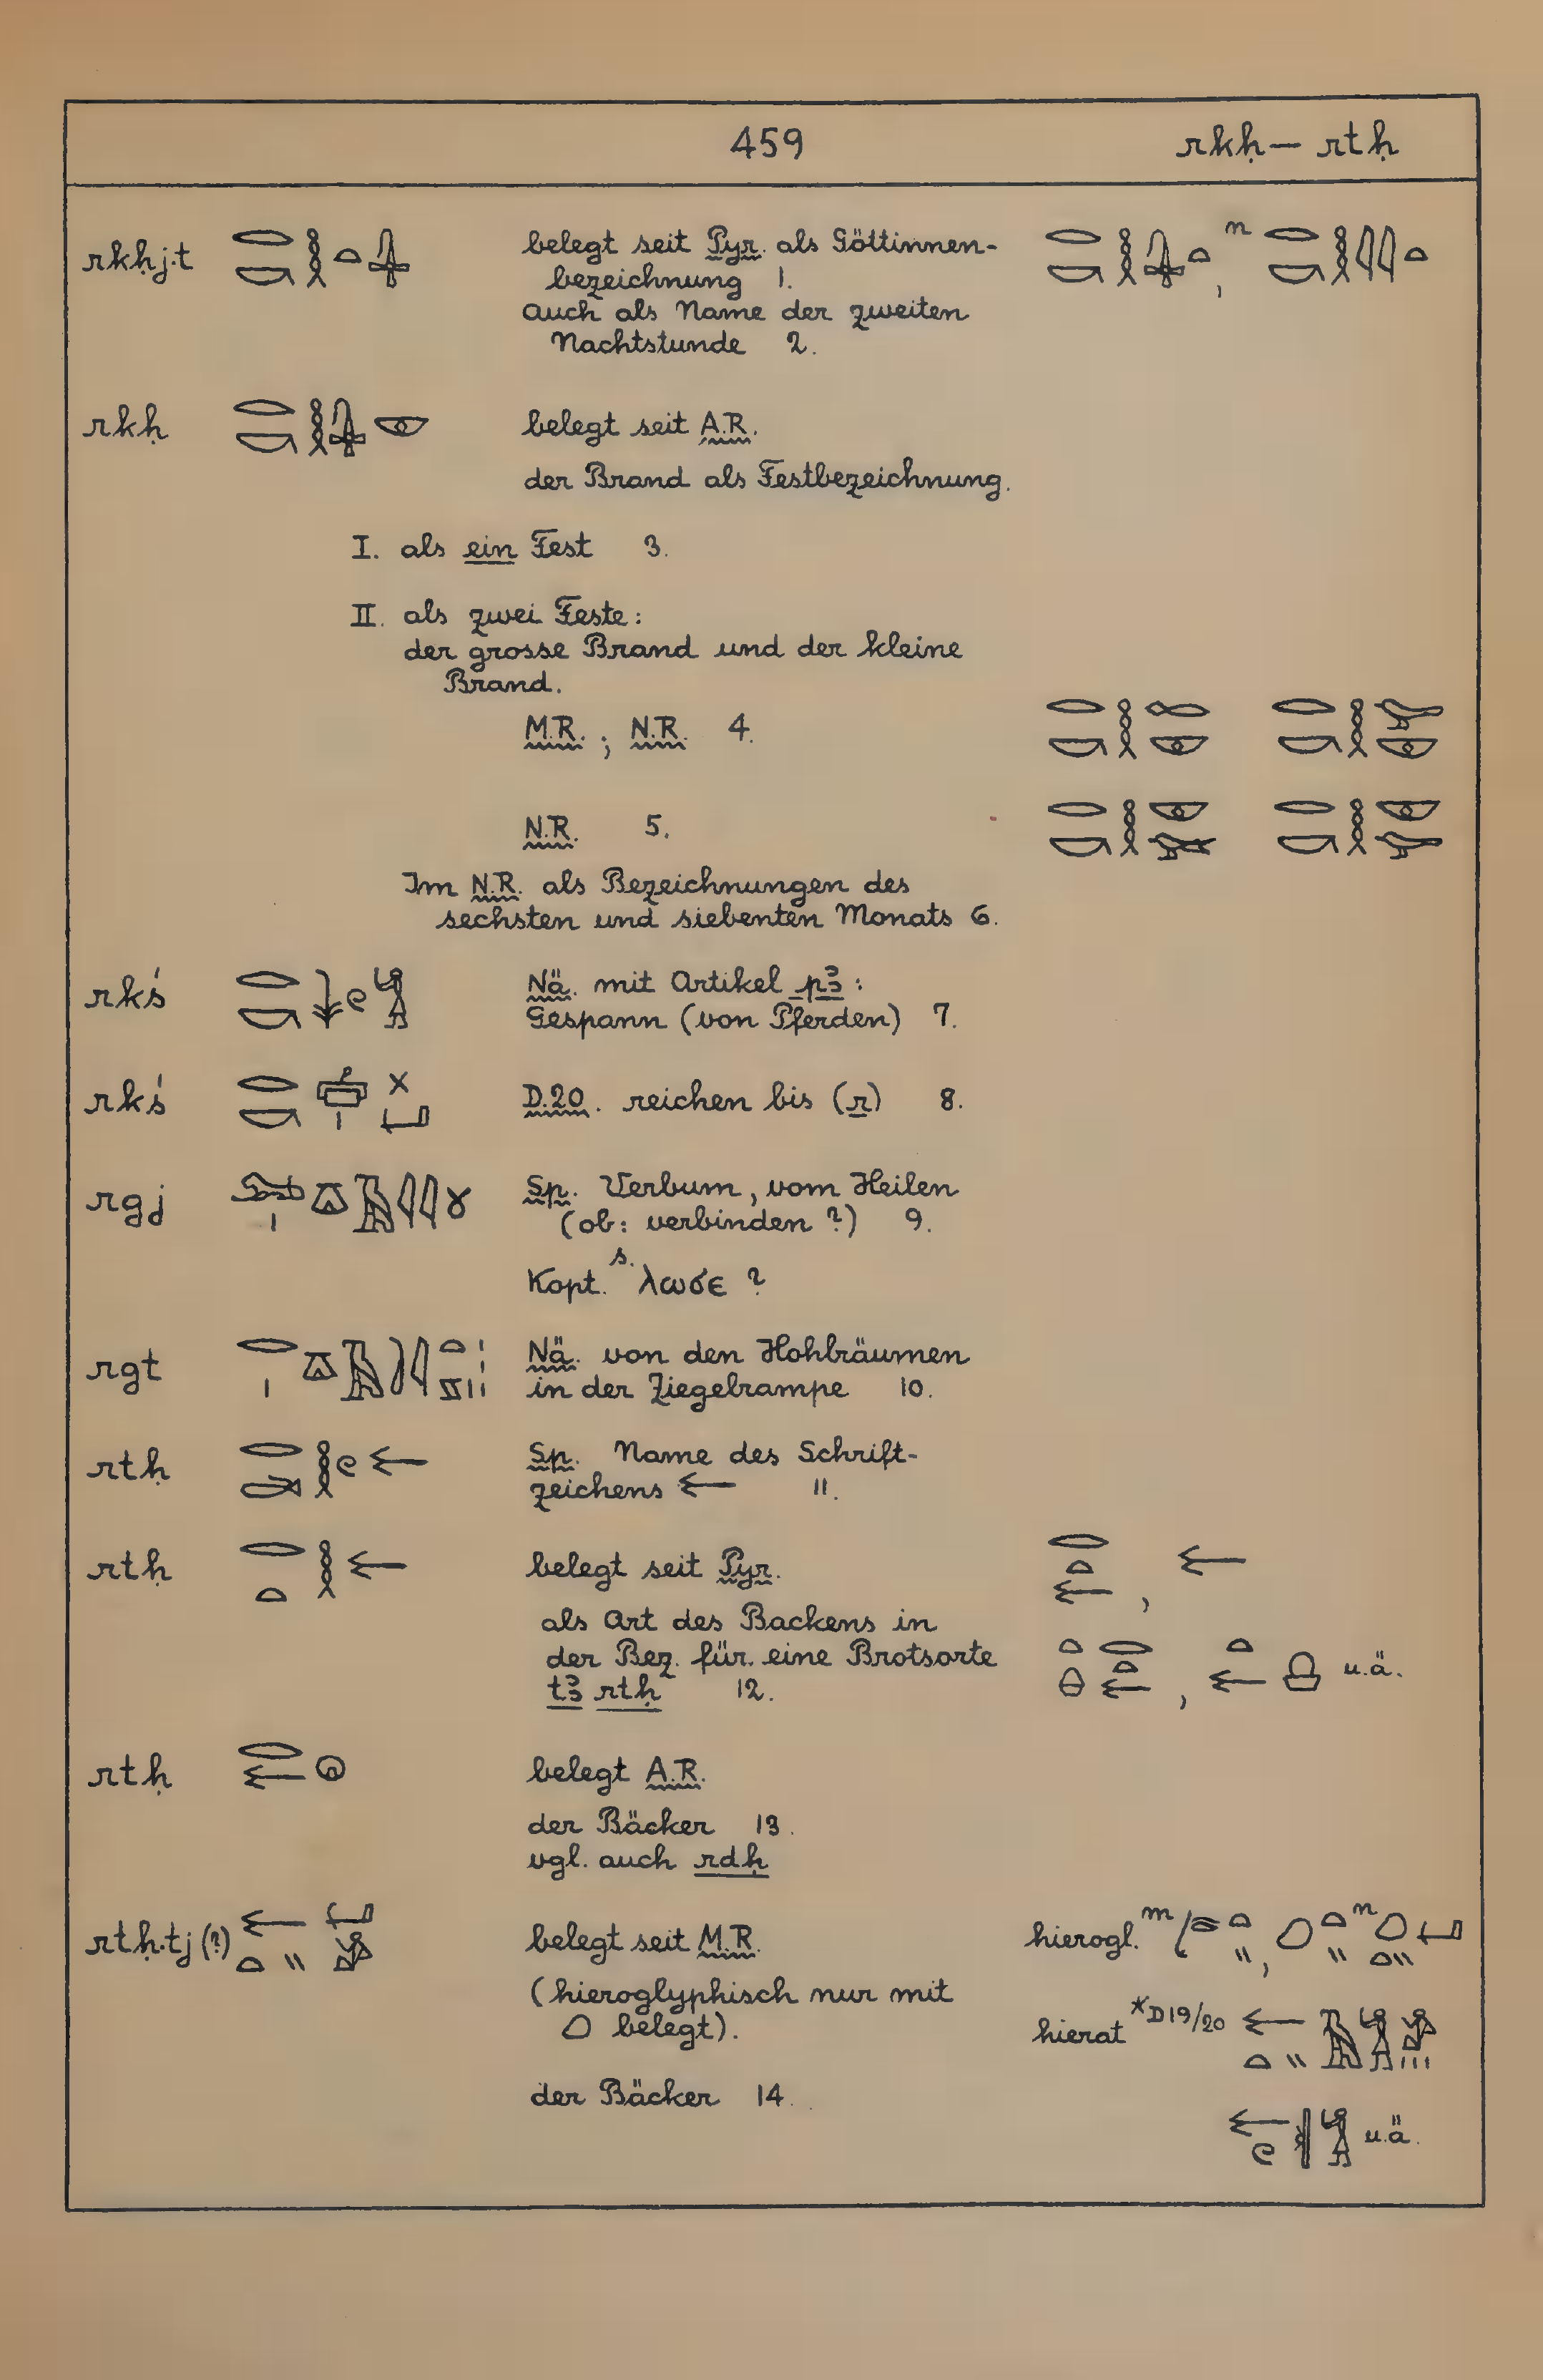 459 rkḥ — rtḥ
rkḥj.t 𓂋𓎡𓎛𓏏𓊮 belegt seit Pyr. als Göttinnen-
bezeichnung 1.
Auch als Name der zweiten
Nachtstunde 2.
𓂋𓎡𓎛𓊮𓏏, n 𓂋𓎡𓎛𓇋𓇋𓏏
rkḥ 𓂋𓎡𓎛𓊮𓎱 belegt seit A.R.
der Brand als Festbezeichnung.
I. als ein Fest 3.
II. als zwei Feste:
der grosse Brand und der kleine
Brand.
M.R.; N.R. 4. 𓂋𓎡𓎛𓆛𓎱 𓂋𓎡𓎛𓅪𓎱
N.R. 5. 𓂋𓎡𓎛𓎱𓅨 𓂋𓎡𓎛𓎱𓅪
Im N.R. als Bezeichnungen des
sechsten und siebenten Monats 6.
rkś 𓂋𓎡𓇓𓏲𓀜 Nä. mit Artikel pꜣ:
Gespann (von Pferden) 7.
rkś D.20. reichen bis (r) 8.
rgj Sp. Verbum, vom Heilen
(ob: verbinden?) 9.
Kopt. s. λωϭε ?
rgt Nä. von den Hohlräumen
in der Ziegelrampe 10.
rtḥ 𓂋𓍿𓎛𓏲 Sp. Name des Schrift-
zeichens 11.
rtḥ 𓂋𓏏𓎛 belegt seit Pyr.
als Art des Backens in
der Bez. für eine Brotsorte
tꜣ rtḥ 12.
u.ä.
rtḥ belegt A.R.
der Bäcker 13.
vgl. auch rdḥ
rtḥ.tj (?) belegt seit M.R.
(hieroglyphisch nur mit
belegt).
der Bäcker 14.
hierogl. m , n
hierat *D19/20
u.ä.